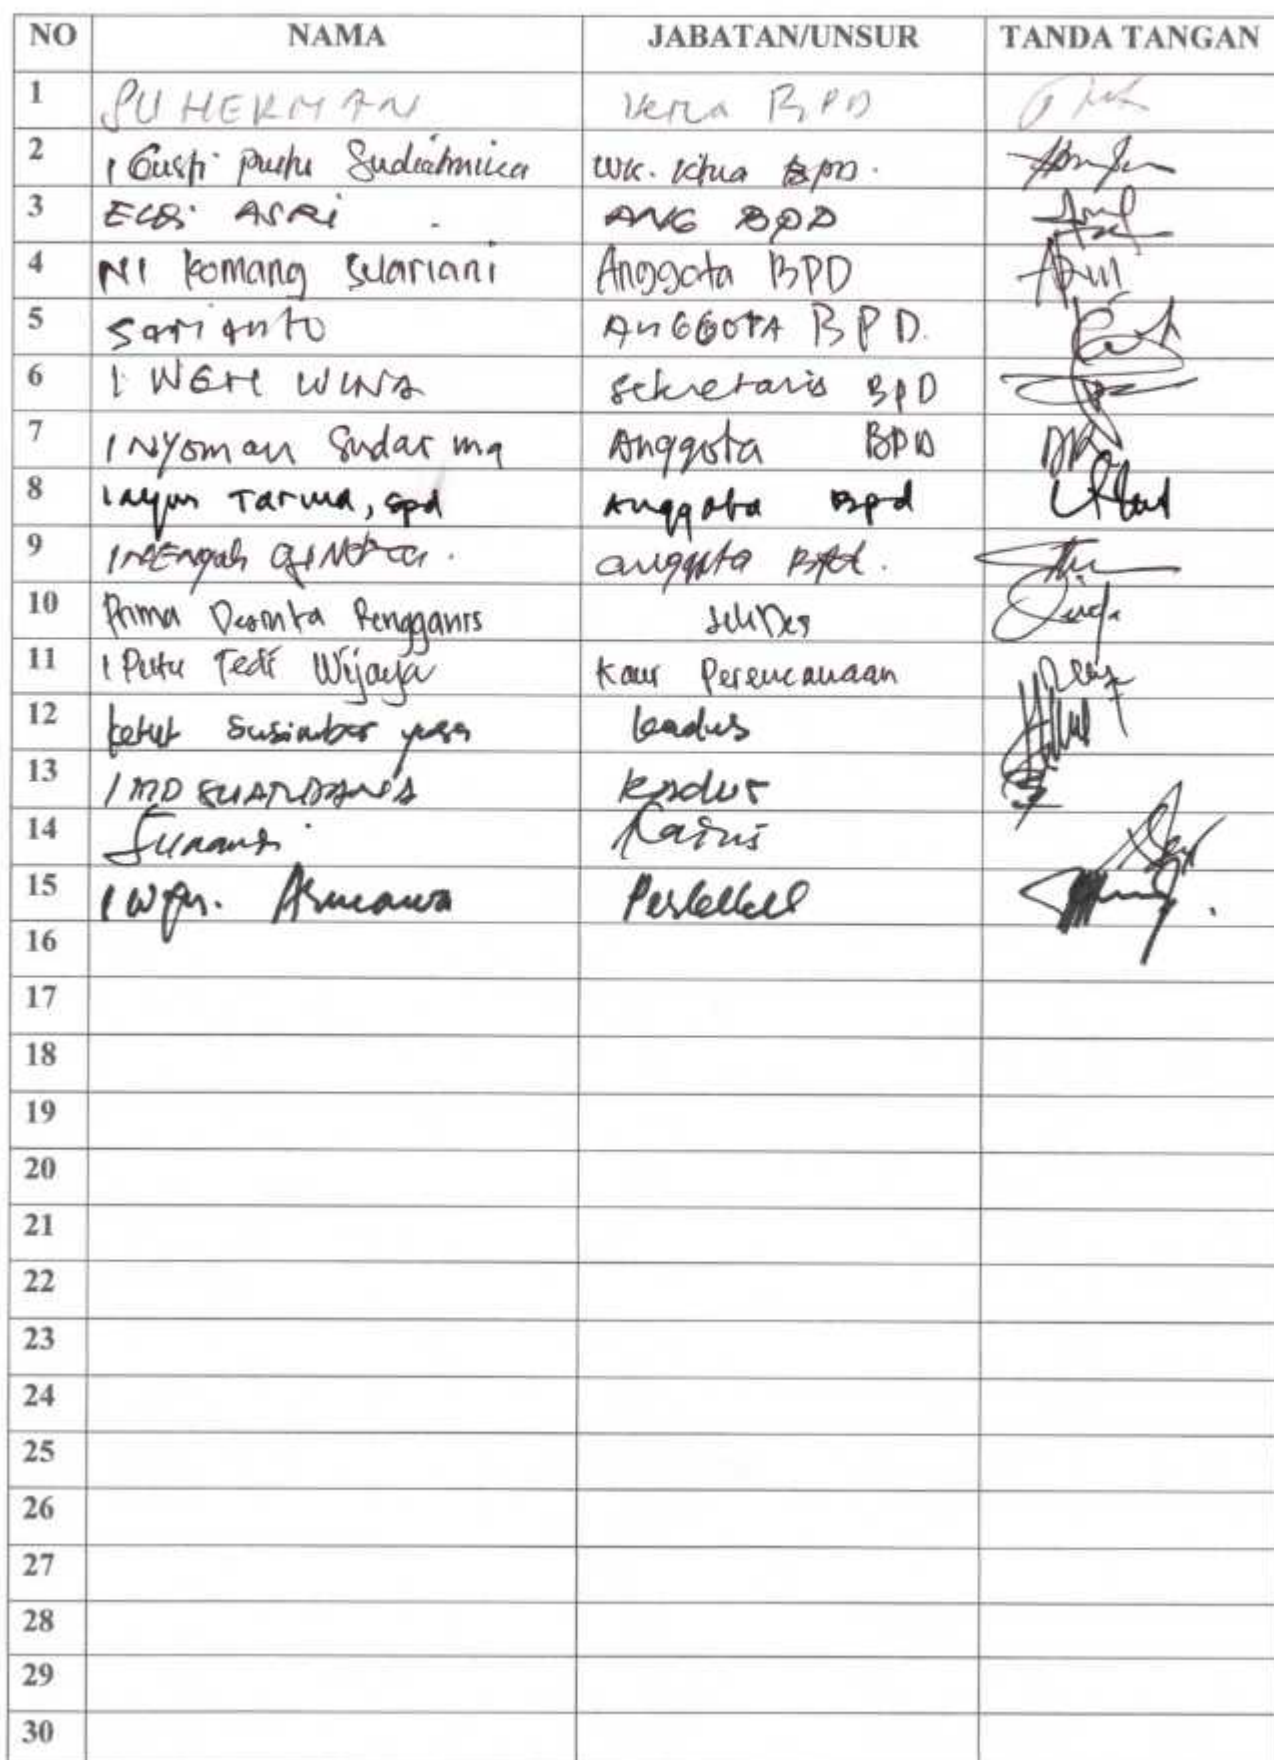 NO NAMA JABATAN/UNSUR TANDA TANGAN
1 SUHERMAN Ketua BPD
2 I Gusti Putu Sudiatmika WK. Ketua BPD.
3 ELSI ASRI ANG BPD
4 NI Komang Sulariani Anggota BPD
5 Sarianto ANGGOTA BPD.
6 I WGH WINA Sekretaris BPD
7 I NYoman Sudarma Anggota BPD
8 Tarma, Spd Anggota Bpd
9 I NENgah anggota BPd.
10 Prima Desinta Rengganis SekDes
11 I Putu Tedi Wijaya Kaur Perencanaan
12 Ketut kadus
13 I MD Kadus
14 Kadus
15 Perbekel
16
17
18
19
20
21
22
23
24
25
26
27
28
29
30